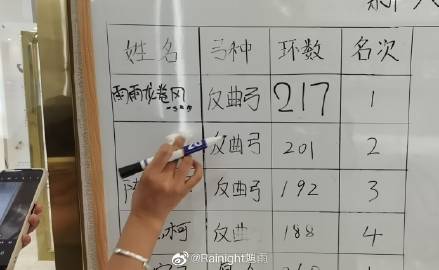 姓名 弓种 环数 名次
雨雨龙卷风 反曲弓 217 1
反曲弓 201 2
反曲弓 192 3
柯 反曲 188 4
@Rainight姵雨